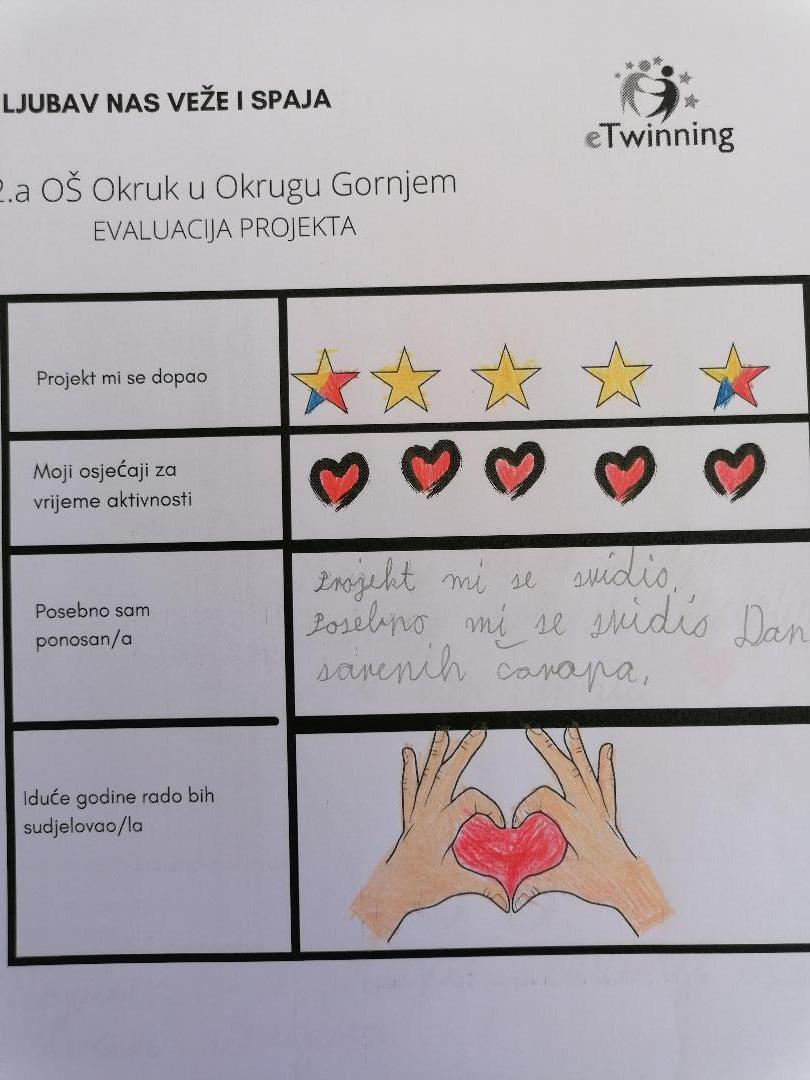 LJUBAV NAS VEŽE I SPAJA
eTwinning
2.a OŠ Okruk u Okrugu Gornjem
EVALUACIJA PROJEKTA
Projekt mi se dopao
Moji osjećaji za
vrijeme aktivnosti
Posebno sam
ponosan/a
Projekt mi se svidio.
Posebno mi se svidio Dan
šarenih čarapa.
Iduće godine rado bih
sudjelovao/la